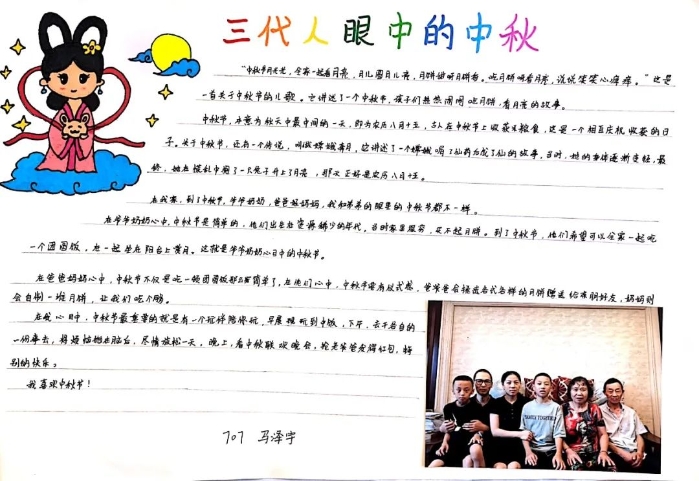 三代人眼中的中秋
“中秋节月光光，全家一起看月亮，月儿圆月儿亮，月饼甜月饼香。吃月饼啊看月亮，说说笑笑心痒痒。”这是
一首关于中秋节的儿歌。它讲述了一个中秋节，孩子们热热闹闹吃月饼，看月亮的故事。
中秋节，本意为秋天中最中间的一天，即为农历八月十五，古人在中秋节上收获足粮食，这是一个相互庆祝收获的日
子。关于中秋节，还有一个传说，叫做嫦娥奔月，它讲述了一个嫦娥喝了仙药为成了仙的故事。当时，她的身体逐渐变轻，最
终，她在慌乱中抱了一只兔子升上了月亮，那天正好是农历八月十五。
在我家，到了中秋节，爷爷奶奶，爸爸妈妈，我和弟弟的眼里的中秋节都不一样。
在爷爷奶奶心中，中秋节是简单的，他们出生在资源稀少的年代，当时家里很穷，买不起月饼。到了中秋节，他们希望可以全家一起吃
一个团圆饭，在一起坐在阳台上赏月。这就是爷爷奶奶心目中的中秋节。
在爸爸妈妈心中，中秋节不仅是吃一顿团圆饭那么简单了，在他们心中，中秋节需有仪式感，爸爸会挑选各式各样的月饼赠送给亲朋好友，妈妈则
会自制一堆月饼，让我们吃个够。
在我心目中，中秋节最重要的就是有一个
一切事去，将烦恼抛在脑后，尽情放松一天。晚上，看中秋联欢晚会，抢老爸爸发得红包，特
别的快乐。
我喜欢中秋节！
707 马泽宇